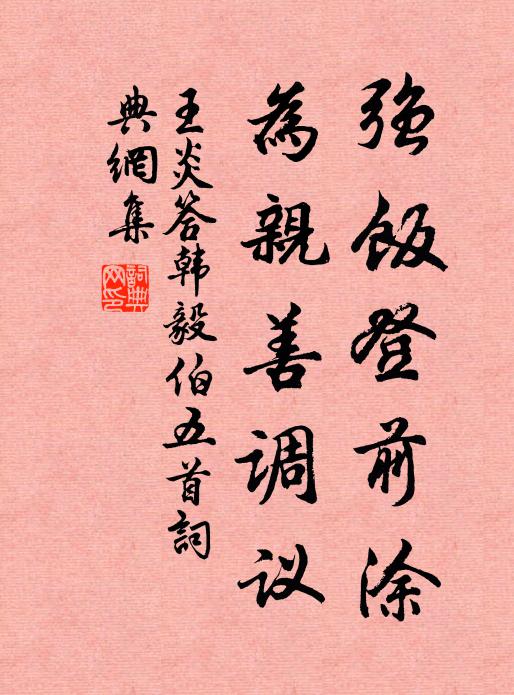 强飯登前涂
為親善調议
王炎答韩毅伯五首詞
典網集
詞典网印